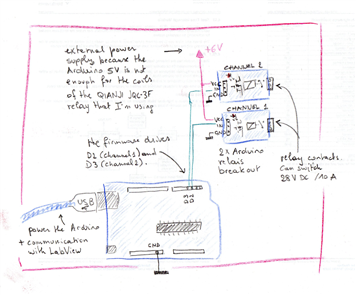 external power
supply because the
Arduino 5V is not
enough for the coils
of the QIANJI JQC-3F
relay that I'm using
+6V
CHANNEL 2
VCC
IN
GND
CHANNEL 1
VCC
IN
GND
the firmware drives
D2 (channel 1) and
D3 (channel 2).
2x Arduino
relais
breakout
relay contacts.
Can switch
28V DC / 10 A
USB
power the Arduino
+ communication
with LabView
GND